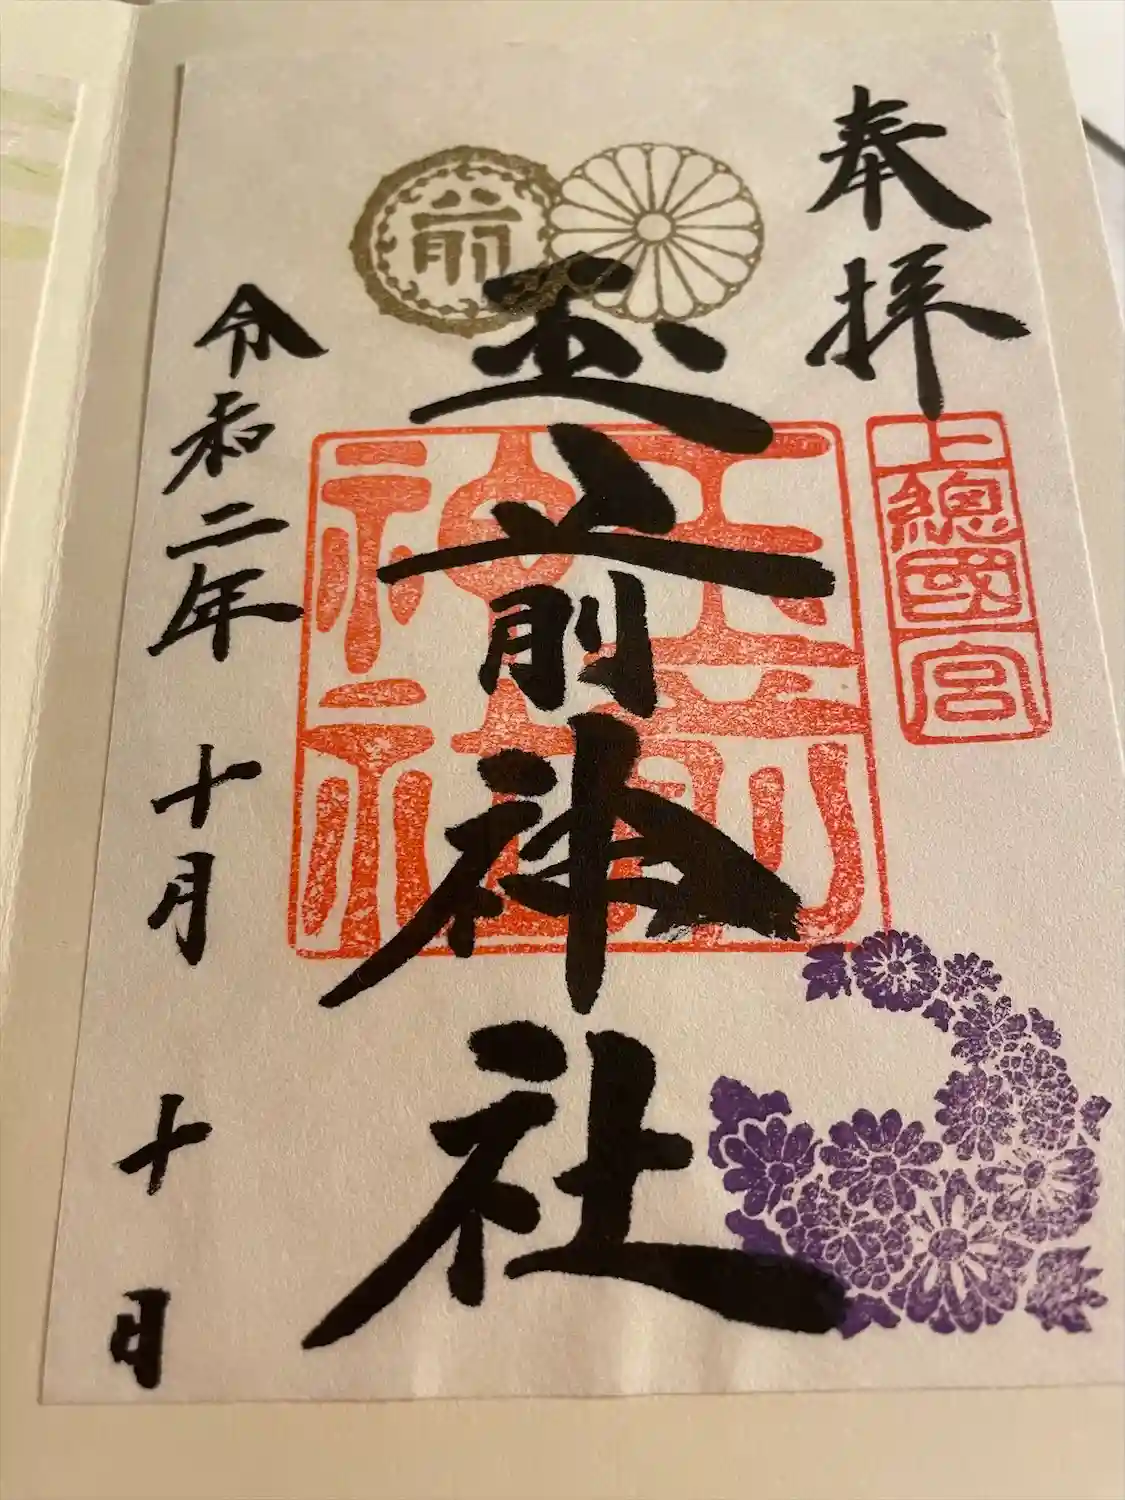 奉拝
上總國一宮
前
玉前神社
玉前神社
令和二年十月十日